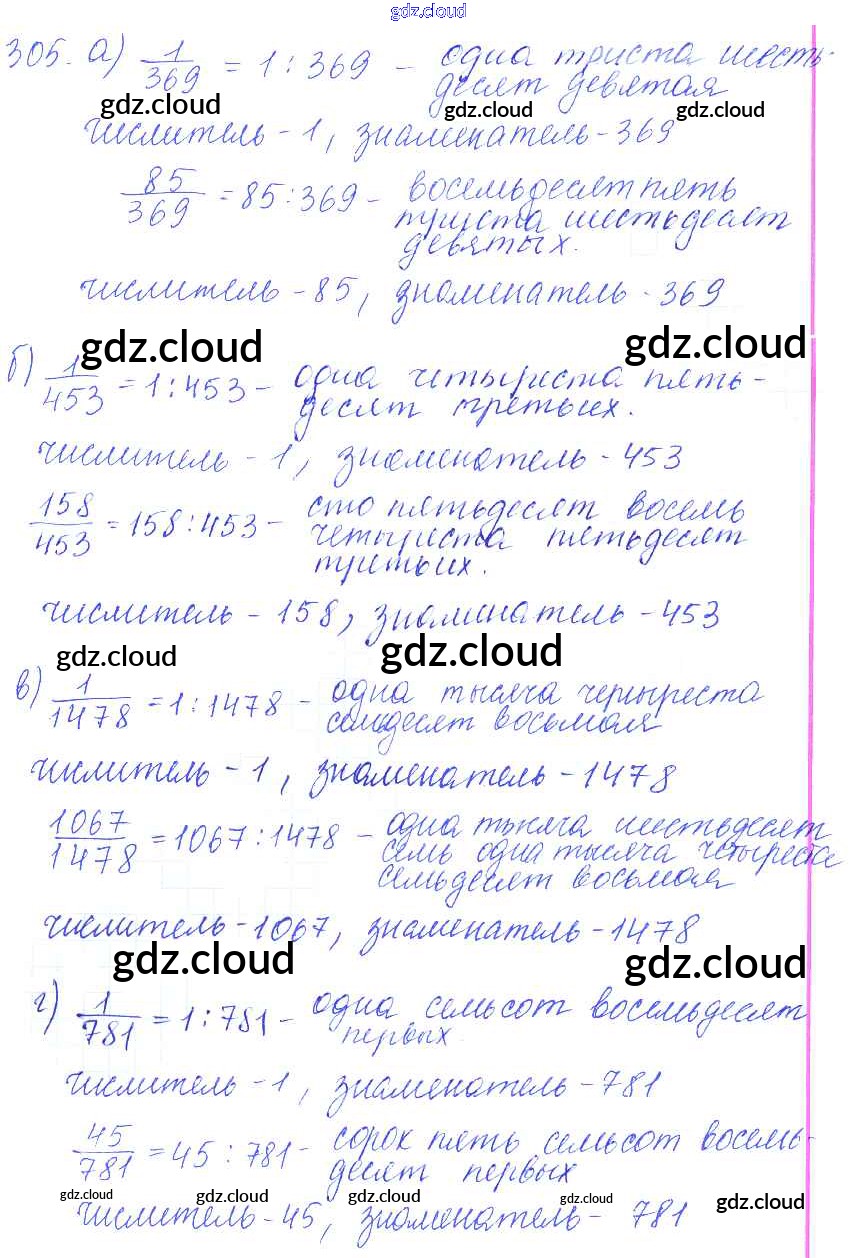 gdz.cloud
305. а) 1/369 = 1 : 369 – одна триста шесть-
десят девятая
gdz.cloud gdz.cloud gdz.cloud
числитель - 1, знаменатель - 369
85/369 = 85 : 369 – восемьдесят пять
триста шестьдесят
девятых.
числитель - 85, знаменатель - 369
gdz.cloud gdz.cloud
б) 1/453 = 1 : 453 – одна четыриста пять-
десят третьих.
числитель - 1, знаменатель - 453
158/453 = 158 : 453 – сто пятьдесят восемь
четыриста пятьдесят
третьих.
числитель - 158, знаменатель - 453
gdz.cloud gdz.cloud
в) 1/1478 = 1 : 1478 – одна тысяча четыреста
семьдесят восьмая
числитель - 1, знаменатель - 1478
1067/1478 = 1067 : 1478 – одна тысяча шестьдесят
семь одна тысяча четыреста
семьдесят восьмая
числитель - 1067, знаменатель - 1478
gdz.cloud gdz.cloud
г) 1/781 = 1 : 781 – одна семьсот восемьдесят
первых
числитель - 1, знаменатель - 781
45/781 = 45 : 781 – сорок пять семьсот восемь-
десят первых
gdz.cloud gdz.cloud gdz.cloud gdz.cloud gdz.cloud
числитель - 45, знаменатель - 781